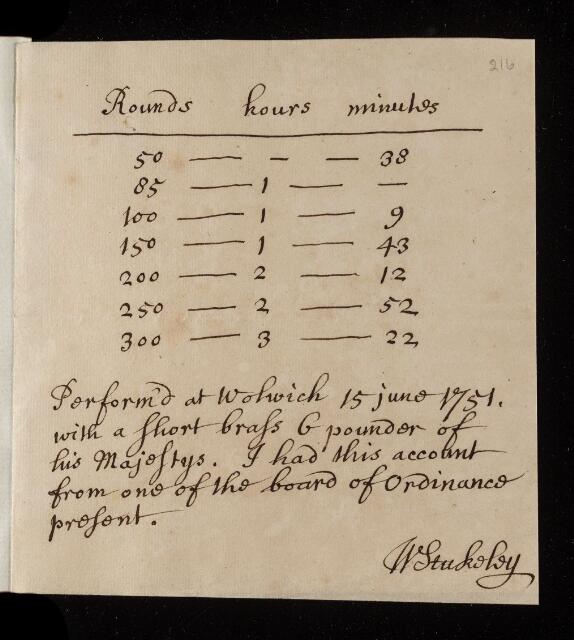 216
Rounds hours minutes
50 — - — 38
85 — 1 — —
100 — 1 — 9
150 — 1 — 43
200 — 2 — 12
250 — 2 — 52
300 — 3 — 22
Perform'd at Wolwich 15 june 1751.
with a short brass 6 pounder of
his Majestys. I had this account
from one of the board of Ordinance
present.
WStukeley